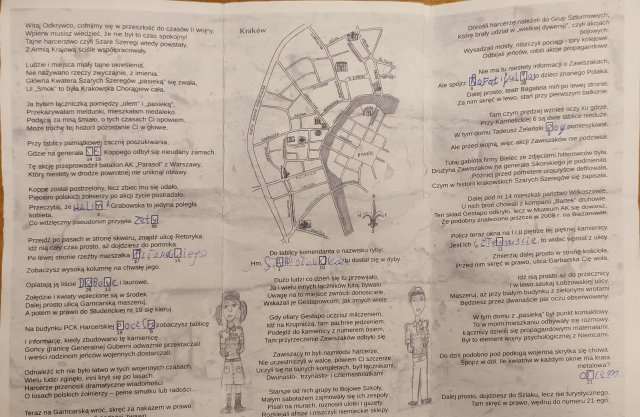 Witaj Odkrywco, cofnijmy się w przeszłość do czasów II wojny,
Wpierw musisz wiedzieć, że nie był to czas spokojny!
Tajne harcerstwo czyli Szare Szeregi wtedy powstały,
Z Armią Krajową ściśle współpracowały.
Ludzie i miejsca miały tajne określenia,
Nie nazywano rzeczy zwyczajnie, z imienia.
Główna Kwatera Szarych Szeregów „pasieką” się zwała,
Ul „Smok” to była Krakowska Chorągiew cała.
Ja byłam łączniczką pomiędzy „ulem” i „pasieką”,
Przekazywałam meldunki, mieszkałam niedaleko,
Podążaj za mną śmiało, o tych czasach Ci opowiem,
Może trochę tej historii pozostanie Ci w głowie.
Przy tablicy pamiątkowej zacznij poszukiwania,
Gdzie na generała Koppego odbył się nieudany zamach.
Tę akcję przeprowadził batalion AK „Parasol” z Warszawy,
Który niestety w drodze powrotnej nie uniknął obławy.
Koppe został postrzelony, lecz zbiec mu się udało,
Pięcioro polskich żołnierzy po akcji życie postradało.
Przeczytaj, że HALINA Grabowska to jedyna poległa
kobieta,
Co wdzięczny pseudonim przyjęła
Przejdź po pasach w stronę skweru, znajdź ulicę Retoryka
Idź nią cały czas prosto, aż dojdziesz do pomnika.
Po lewej stronie rzeźby marszałka Piłsudskiego
Zobaczysz wysoką kolumnę na chwałę jego.
Oplatają ją liście Dębowe i laurowe,
Żołędzie i kwiaty wplecione są w środek.
Dalej prosto ulicą Garncarską maszeruj,
A potem w prawo do Studenckiej nr 19 się kieruj.
Na budynku PCK Harcerskiej Poczty zobaczysz tablicę
I informację, kiedy zbudowano tę kamienicę
Gońcy granicę Generalnej Guberni odważnie przekraczali
I wieści rodzinom jeńców wojennych dostarczali.
Odnaleźć ich nie było łatwo w tych wojennych czasach,
Wielu ludzi zginęło, inni kryli się po lasach.
Harcerze przenosili dramatyczne wiadomości
O losach polskich żołnierzy – pełne smutku lub radości...
Teraz na Garncarską wróć, skręć za nakazem w prawo
Kraków
Do tablicy komendanta o nazwisku ryby:
Hm. dostał się w dyby.
Dużo ludzi co dzień się tu przewijało,
Jan wielu innych łączników tutaj bywało
Uwagę na to miejsce zwrócił donosiciel,
Wskazał je Gestapowcom, jak innych wiele.
Gdy ofiary Gestapo uczcisz milczeniem,
Idź na Krupniczą, tam pachnie jedzeniem.
Podejdź do kamienicy z numerem ósmym,
Tam przyrzeczenie Zawiszaków odbyło się.
Zawiszacy to byli najmłodsi harcerze,
Nie uczestniczyli w walce, powiem Ci szczerze
Uczyli się na tajnych kompletach, byli łącznikami,
Dwunasto-, trzynasto- i czternastolatkami
Starsze od nich grupy to Bojowe Szkoły,
Małym sabotażem zajmowały się ich zespoły.
Pisali na murach, roznosili ulotki i gazety,
Rozklejali afisze i niszczyli niemieckie sklepy.
Dorośli harcerze należeli do Grup Szturmowych,
Które brały udział w „wielkiej dywersji”, czyli akcjach
bojowych.
Wysadzali mosty, niszczyli pociągi i tory kolejowe,
Odbijali jeńców, robili akcje propagandowe.
Nie ma tu niestety informacji o Zawiszakach,
Ale spójrz: Na Fotiful to dzieci znanego Polaka.
Dalej prosto, teatr Bagatela miń po lewej stronie,
Za nim skręć w lewo, stań przy pierwszym balkonie.
Tam czym prędzej wznieś oczy ku górze,
Przy Karmelickiej 6 są dwie tablice nieduże.
W tym domu Tadeusz Żeleński Boy pomieszkiwał,
Ale przed wojną, więc akcji Zawiszaków nie podziwiał.
Tutaj gabłota firmy Bielec ze zdjęciami hitlerowców była.
Drużyna Zawiszaków na generała Sikorskiego je podmieniła.
Później przed portretem uroczyście defilowała,
Czym w historii krakowskich Szarych Szeregów się zapisała.
Dalej pod nr 14 mieszkali państwo Wilkoszowie,
U nich broń chowali z kompanii „Bartek” druhowie.
Ten skład Gestapo odkryło, lecz w Muzeum AK się dowiesz,
Że podobny znaleziono jeszcze w 2008 r. na Bieżanowie.
Policz teraz okna na I i II piętrze tej pięknej kamienicy
Jest ich czternaście, to widać wprost z ulicy.
Zmierzaj dalej prosto w stronę kościoła,
Przed nim skręć w prawo, ulica Garbarska Cię woła.
Idź nią prosto aż do przecznicy
I w lewo szukaj Łobzowskiej ulicy.
Maszeruj, aż przy białym budynku z zielonymi wrotami
Będziesz przed dwanaście par oczu obserwowany.
W tym domu z „pasieką” był punkt kontaktowy.
To w moim mieszkaniu odbywały się rozmowy.
Łącznicy dzielili się propagandowymi materiałami.
Był to element wojny psychologicznej z Niemcami.
Do dziś podobno pod podłogą wojenna skrytka się chowa.
Spójrz w dół. Ile kwiatów w każdym oknie ma krata
metalowa?
osiem
Dalej prosto, dojdziesz do Szlaku, lecz nie turystycznego,
Tam skręć w prawo, wędruj do numeru 21-ego.